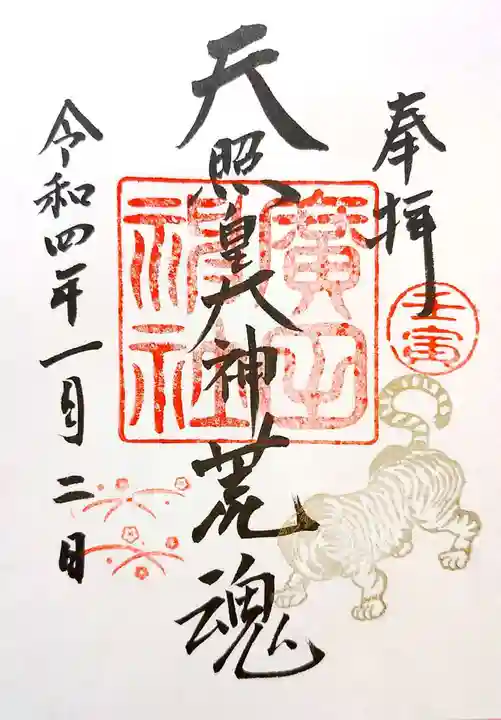 奉拝
壬寅
天照皇大神荒魂
廣田
神社
令和四年一月二日